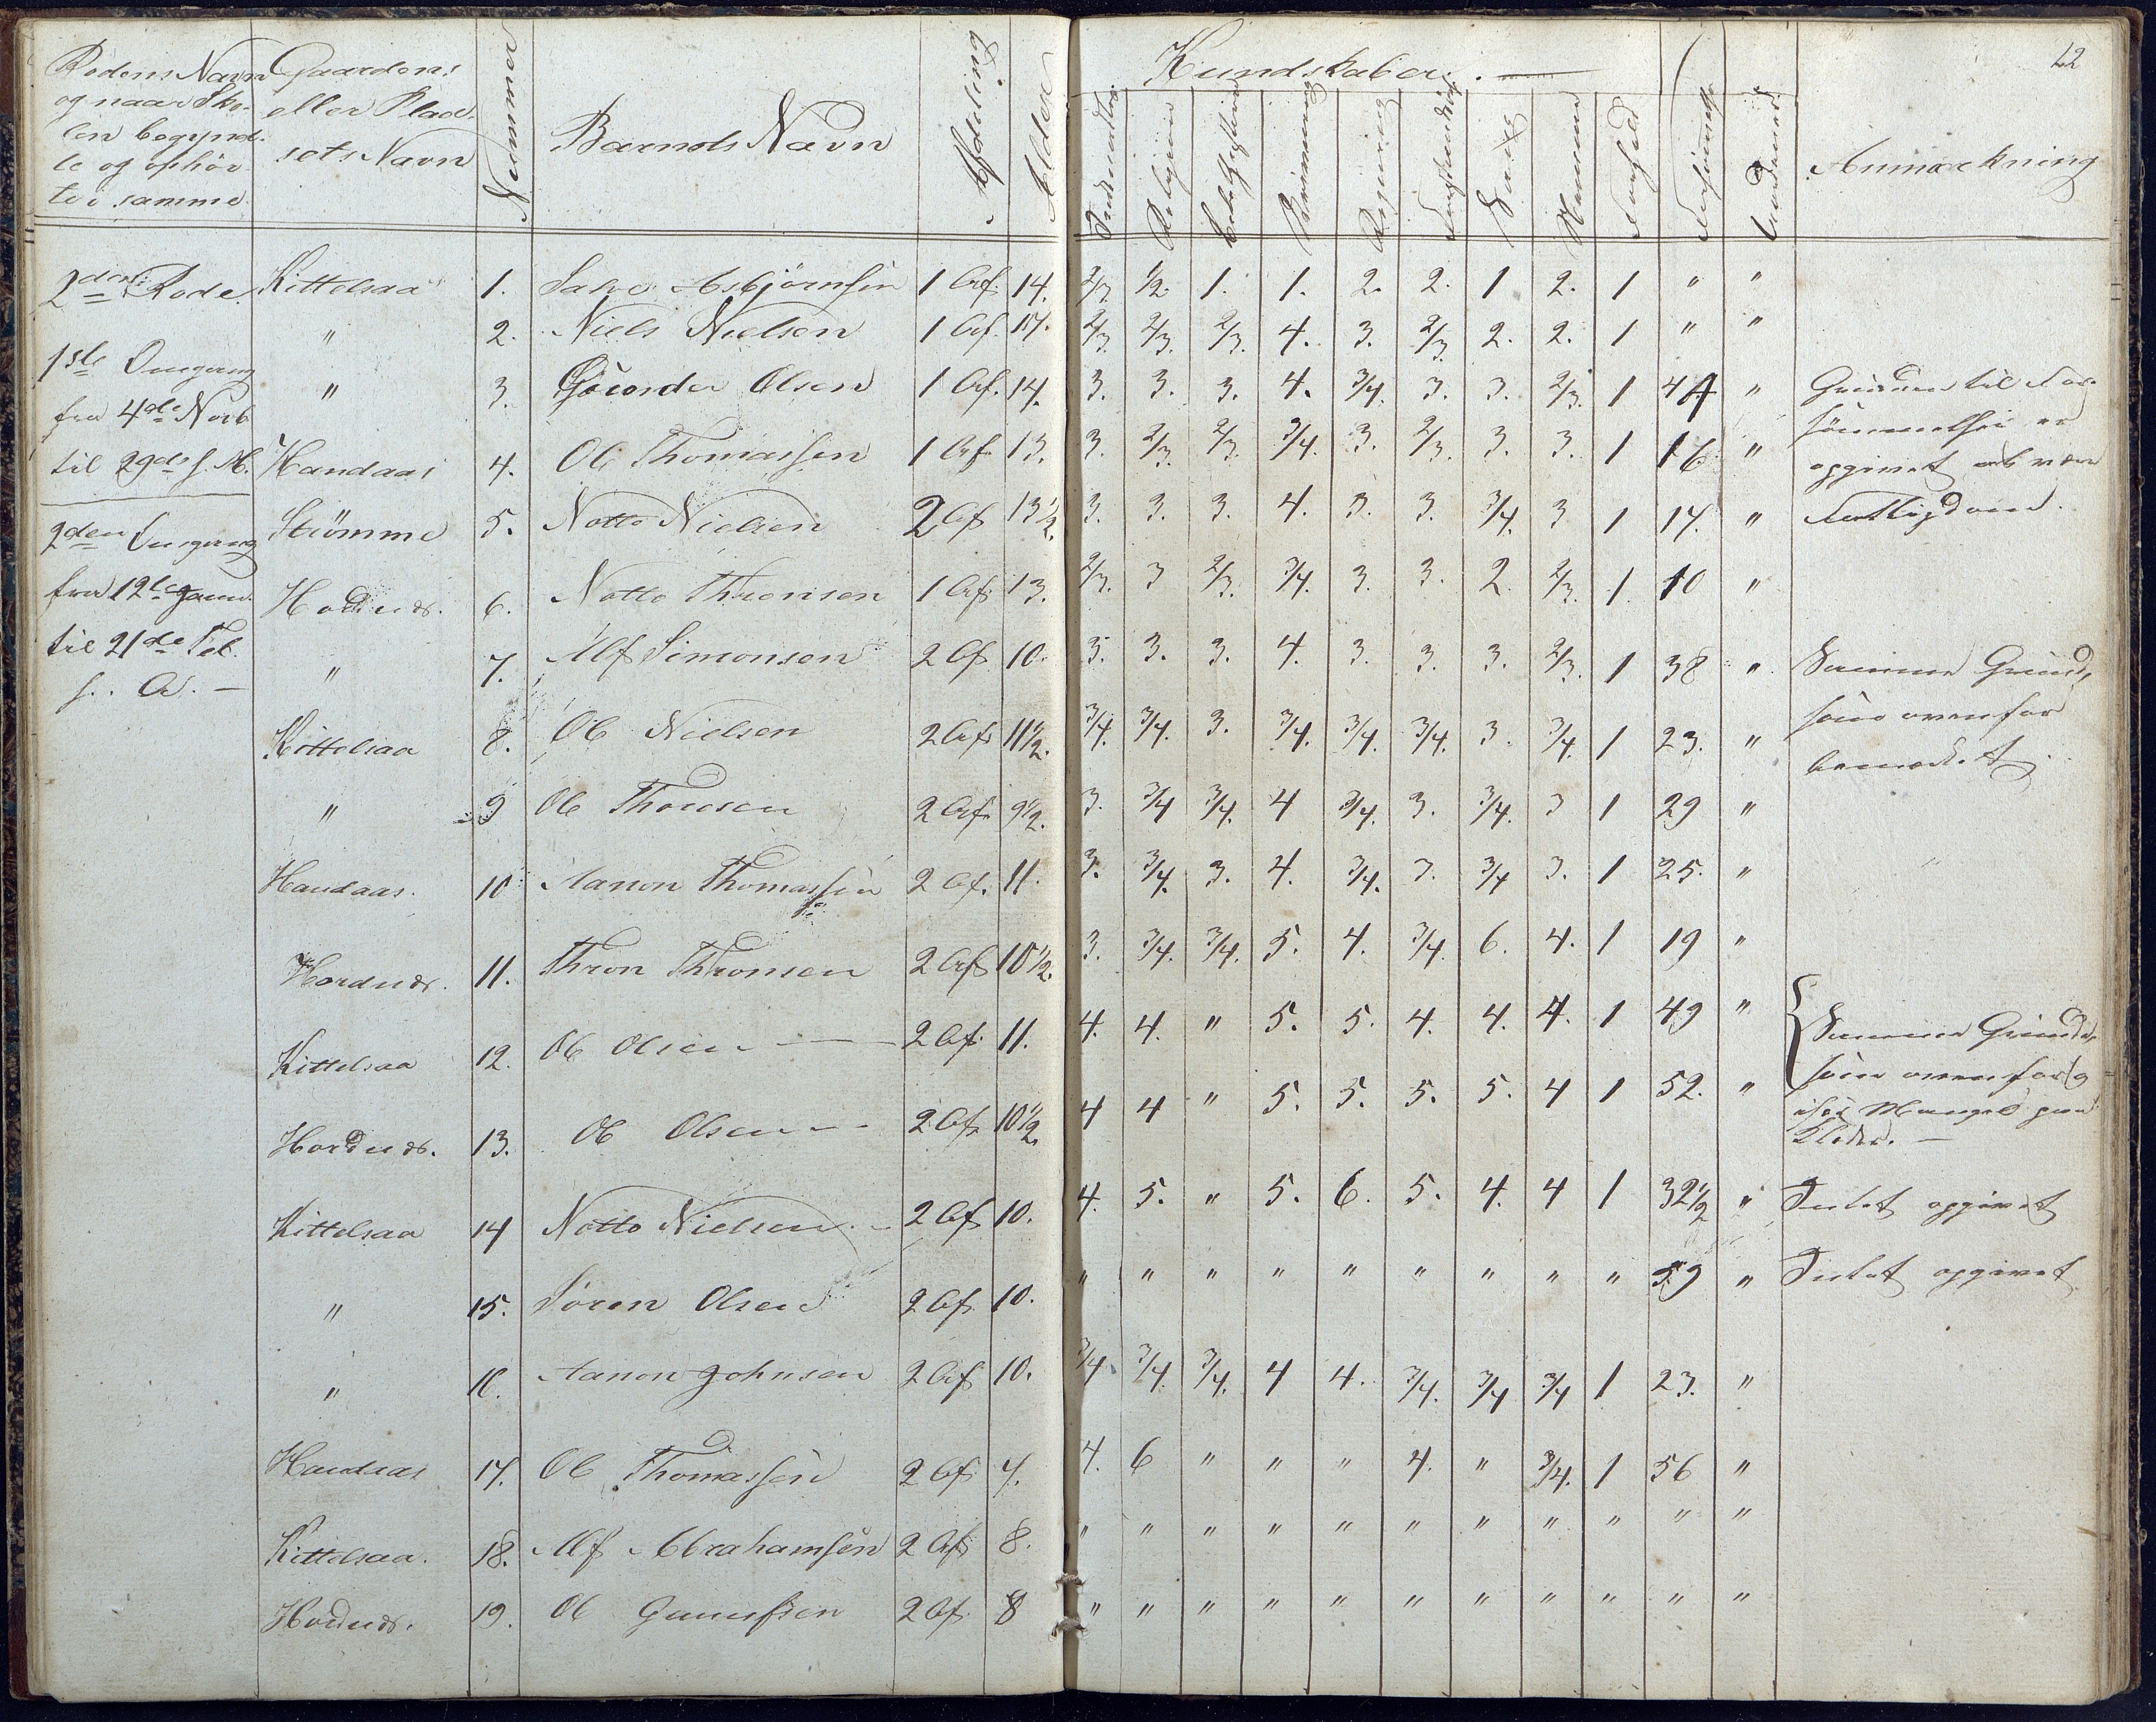 12
Rodens Navn
og naar Sko-
len begynd-
te og ophör-
te i samme
Gaardens
eller Plad-
sets Navn
Nummer
Barnets Navn
Afdeling
Alder
Kundskaber. —
Religion
Regning
Sang
Anmærkning
2den Rode
1ste Omgang
fra 4de Novb
til 29de s. M.
2den Omgang
fra 12te Janu.
til 21de Feb.
s. A. —
Kittelsaa 1. Salve Asbjörnsen 1 Af. 14. 2/3 1/2. 1. 1. 2. 2. 1 2. 1 " "
" 2. Niels Nielsen 1 Af. 14. 2/3. 2/3. 2/3. 4. 3. 2/3. 2. 2. 1 " "
" 3. Olsen 1 Af. 14. 3. 3. 3. 4. 3/4. 3. 3. 2/3. 1 44 " Grunden til For-
sömmelsen er
opgivet at være
Fattigdom.
Handaas 4. Ole Thomassen 1 Af. 13. 3. 2/3. 2/3. 3/4. 3. 2/3. 3. 3. 1 16 "
Strömme 5. Notto Nielsen 2 Af 13 1/2. 3. 3. 3. 4. 3. 3. 3/4. 3 1 17. "
Hodnæs. 6. Notto Thronsen 1 Af. 13. 2/3. 3 2/3. 3/4. 3. 3. 2. 2/3. 1. 10 "
" 7. Alf Simonsen 2 Af 10. 3. 3. 3. 4. 3. 3. 3. 2/3. 1 38 " Samme Grund,
som ovenfor
bemærket.
Kittelsaa 8. Ole Nielsen 2 Af. 11 1/2. 3/4. 3/4. 3. 3/4. 3/4. 3/4. 3. 3/4. 1 23. "
" 9 Ole Thorsen 2 Af. 9 1/2. 3. 3/4 3/4. 4 3/4. 3. 3/4. 3 1 29 "
Handaas. 10 Aanon Thomassen 2 Af. 11. 3. 3/4. 3. 4. 3/4. 3. 3/4 3. 1 25. "
Hordnæs. 11. Thron Thronsen 2 Af. 10 1/2. 3. 3/4. 3/4. 5. 4. 3/4. 6. 4. 1 19 "
Kittelsaa 12. Ole Olsen — 2 Af. 11. 4. 4. " 5. 5. 4. 4. 4. 1 49 " Samme Grund,
som ovenfor og
især Mangel paa
Klæder. —
Hordnæs. 13. Ole Olsen — 2 Af. 10 1/2. 4 4 " 5. 5. 5. 5. 4 1 52. "
Kittelsaa 14 Notto Nielsen — 2 Af 10. 4. 5. " 5. 6. 5. 4. 4 1 32 1/2 " Intet opgivet
" 15. Sören Olsen 2 Af. 10. " " " " " " " " " 59 " Intet opgivet
" 16. Aanon Johnsen 2 Af 10. 3/4. 3/4. 3/4. 4 4. 3/4. 3/4 3/4 1 23. "
Handaas 17. Ole Thomassen 2 Af. 7. 4. 6 " " " 4. " 3/4. 1 56 "
Kittelsaa. 18. Alf Abrahamsen 2 Af. 8. " " " " " " " " " " "
Hodnæs. 19. Ole Gunufsen 2 Af. 8 " " " " " " " " " " "